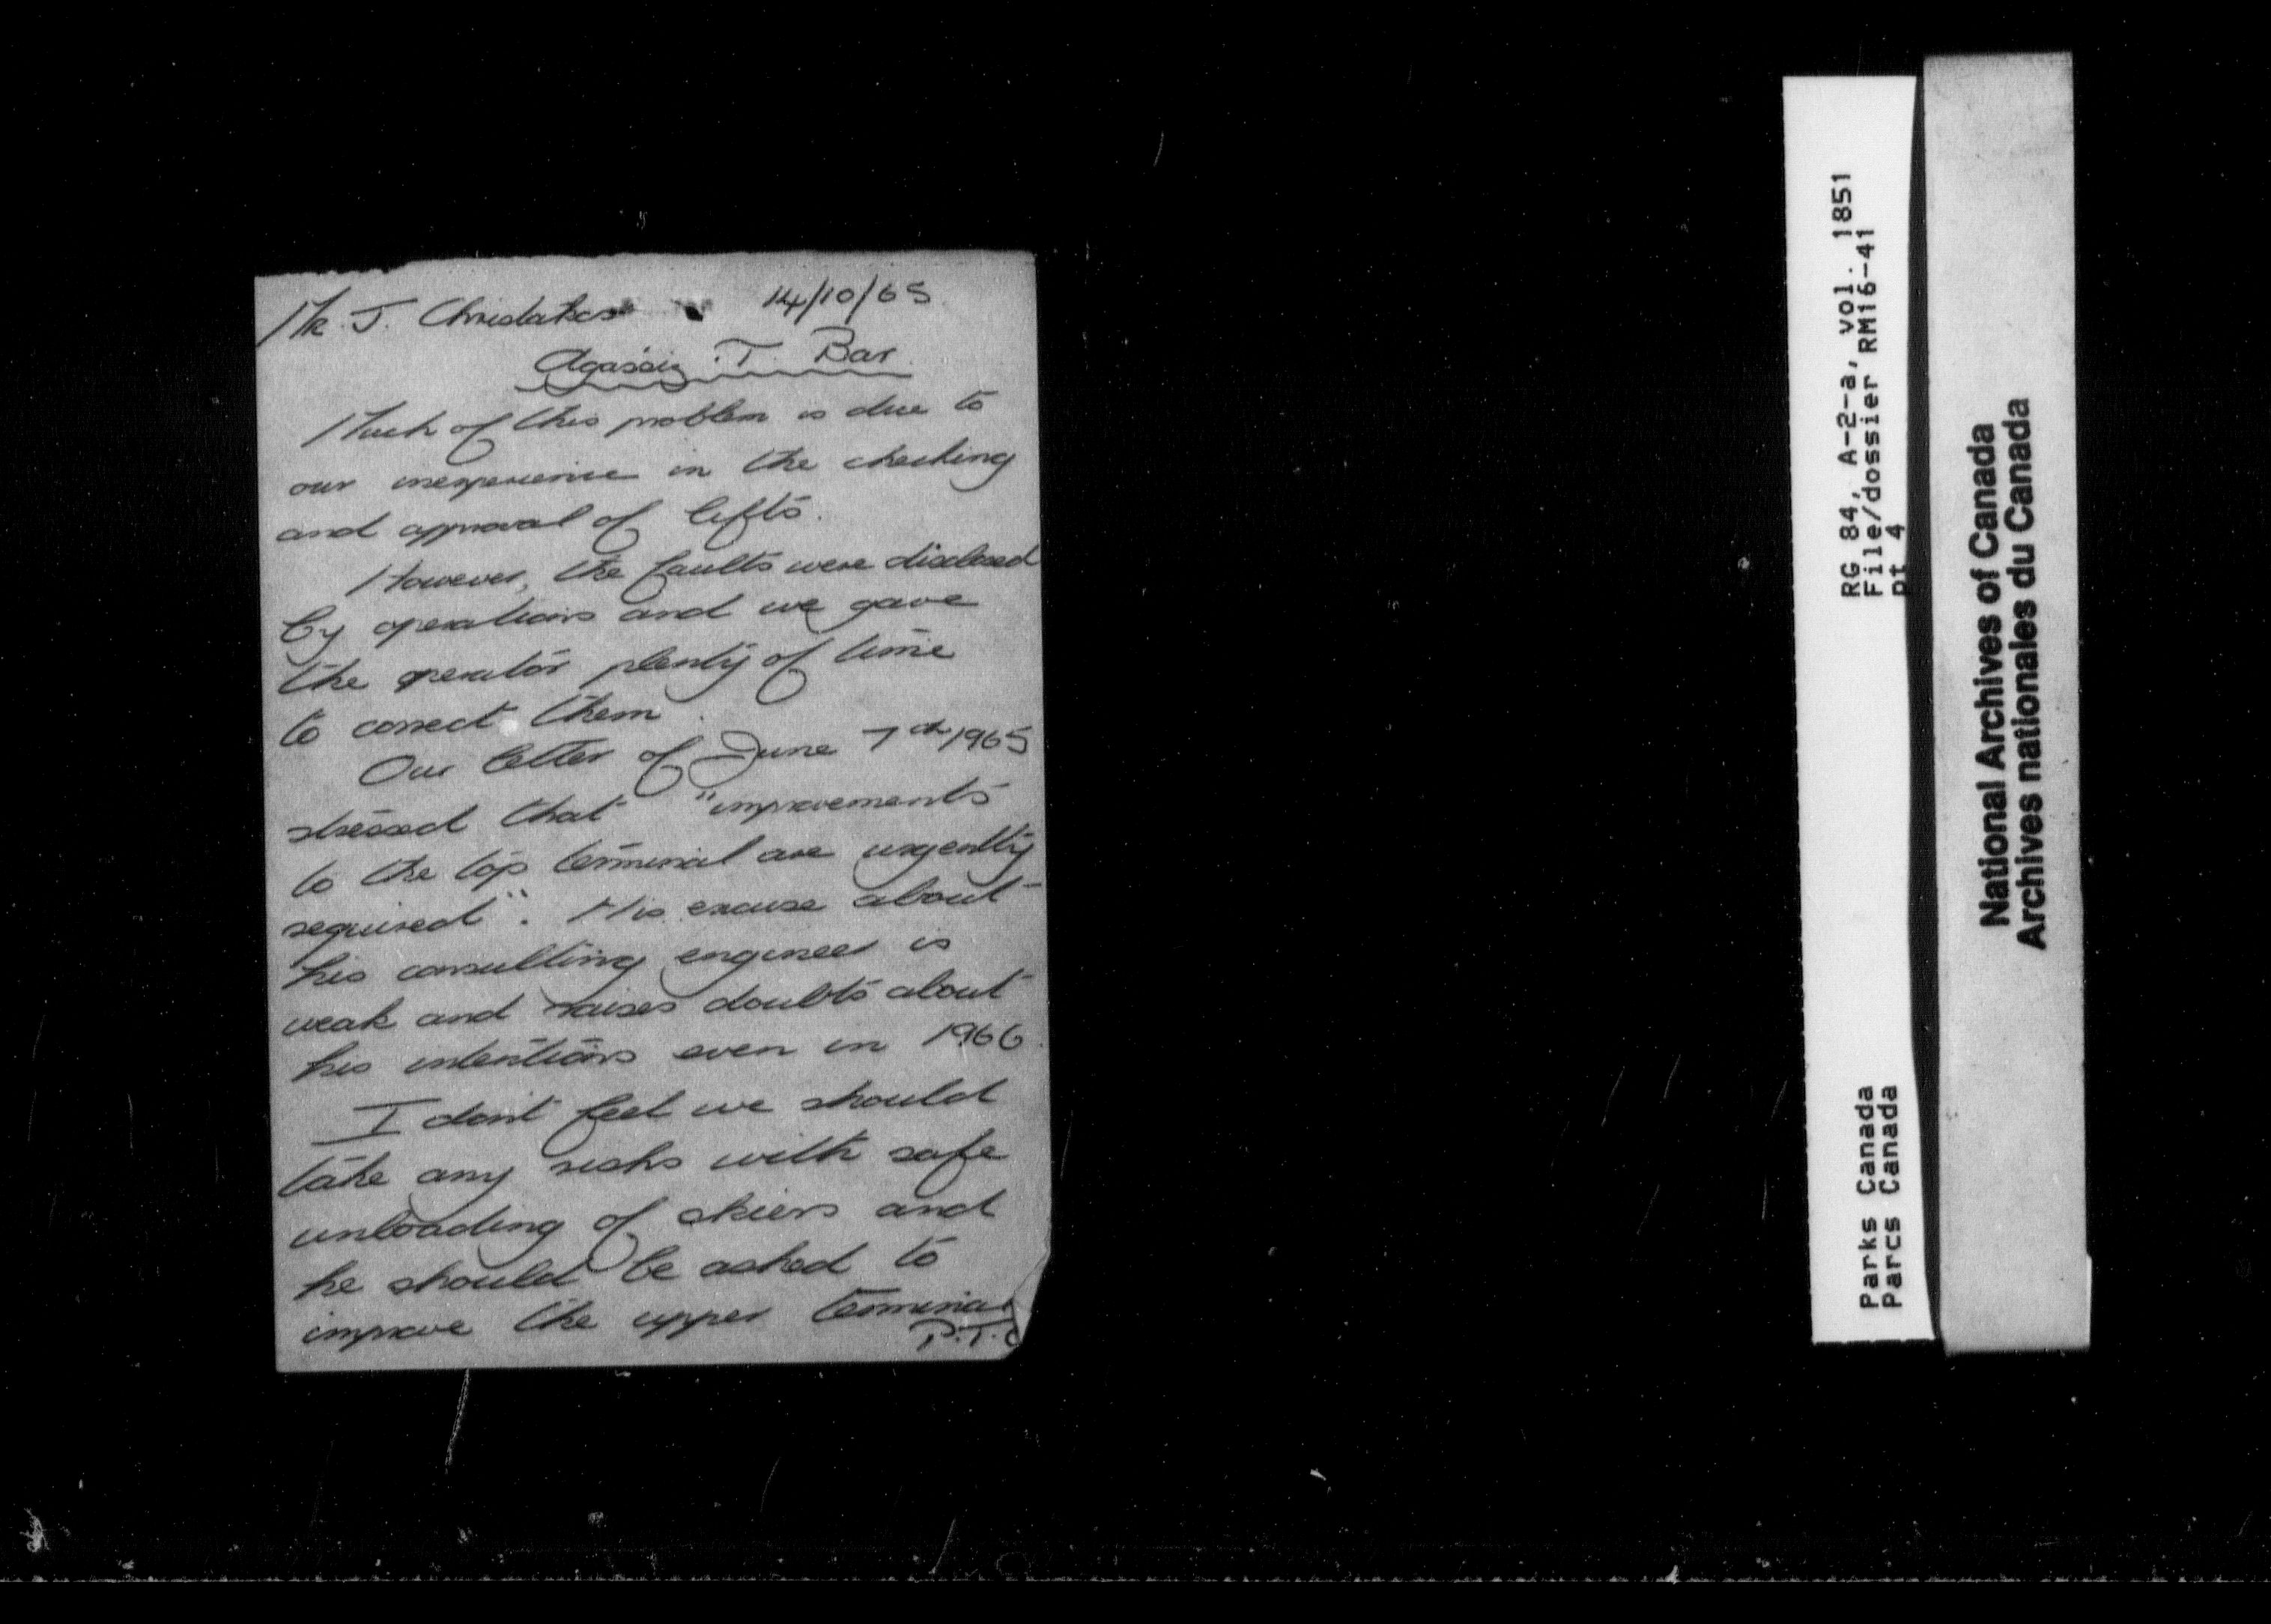 Mr. J. Christakos 14/10/65
Agassiz T. Bar
Much of this problem is due to
our inexperience in the checking
and approval of lifts.
However, the faults were disclosed
by operations and we gave
the operator plenty of time
to correct them.
Our letter of June 7th 1965
stressed that "improvements
to the top terminal are urgently
required". His excuse about
his consulting engineer is
weak and raises doubts about
his intentions even in 1966.
I don't feel we should
take any risks with safe
unloading of skiers and
he should be asked to
improve the upper terminal
P.T.O
RG 84, A-2-a, vol. 1851
File/dossier RM16-41
pt 4
Parks Canada
Parcs Canada
National Archives of Canada
Archives nationales du Canada